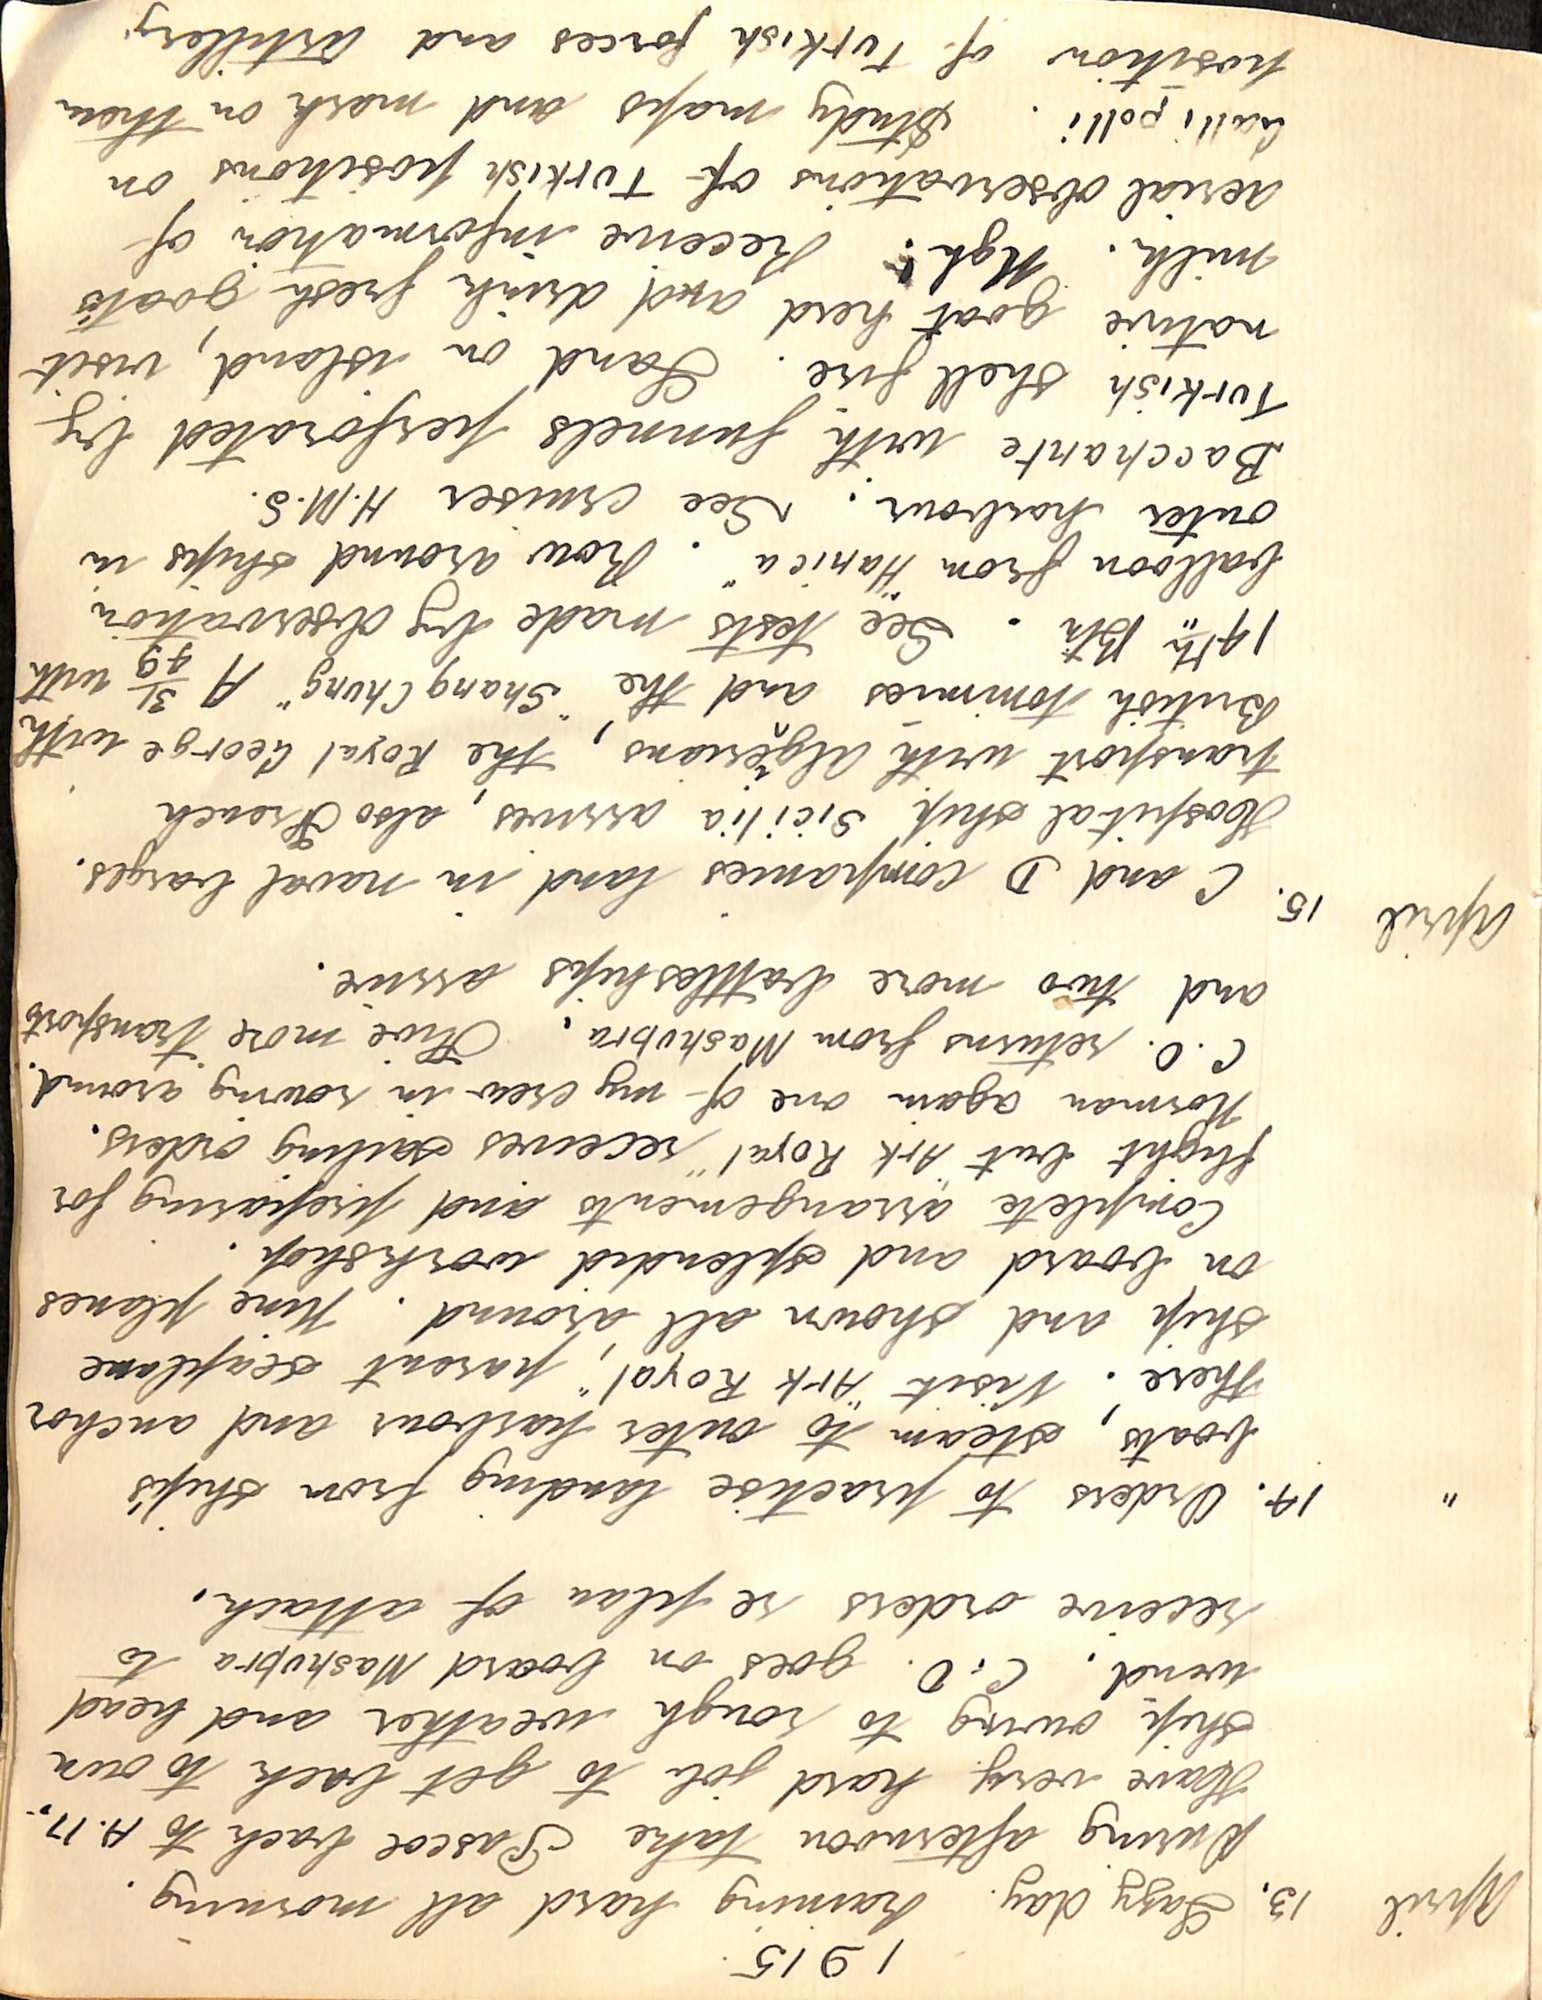 1915.
April 13. Lazy day. Raining hard all morning.
During afternoon take Pascoe back to A.17.
Have very hard job to get back to own
ship owing to rough weather and head
wind. C.O. goes on board Mashobra to
receive orders re plan of attack.
" 14. Orders to practise landing from ship's
boats, steam to outer harbour and anchor
there. Visit "Ark Royal", parent seaplane
ship and shown all around. Nine planes
on board and splendid workshop.
Complete arrangements and preparing for
flight but "Ark Royal" receives sailing orders.
Norman again one of my crew in rowing around.
C.O. returns from Mashobra. Five more transports
and two more battleships arrive.
April 15. C and D companies land in naval barges.
Hospital ship Sicilia arrives, also French
transport with Algerians, the Royal George with
British tommies and the "Shang Chung" A 31/49 with
14th Btn. See tests made by observation
balloon from "Hanica". Row around ships in
outer harbour. See cruiser H.M.S.
Bacchante with funnels perforated by
Turkish shell fire. Land on island, visit
native goat herd and drink fresh goats
milk. Ugh! Receive information of
aerial observations of Turkish positions on
Gallipolli. Study maps and mark on them
position of Turkish forces and artillery.